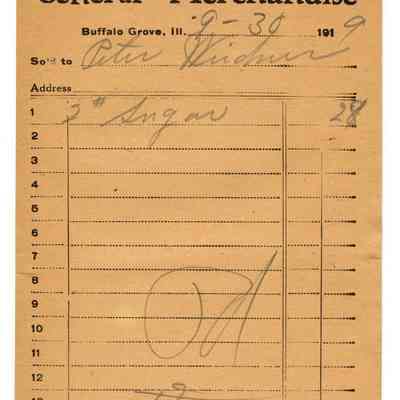 General Merchandise
Buffalo Grove, Ill. 9-30 1919
Sold to Peter Weidner
Address
1 3# Sugar 28
2
3
4
5
6
7
8
9
10
11
12
13